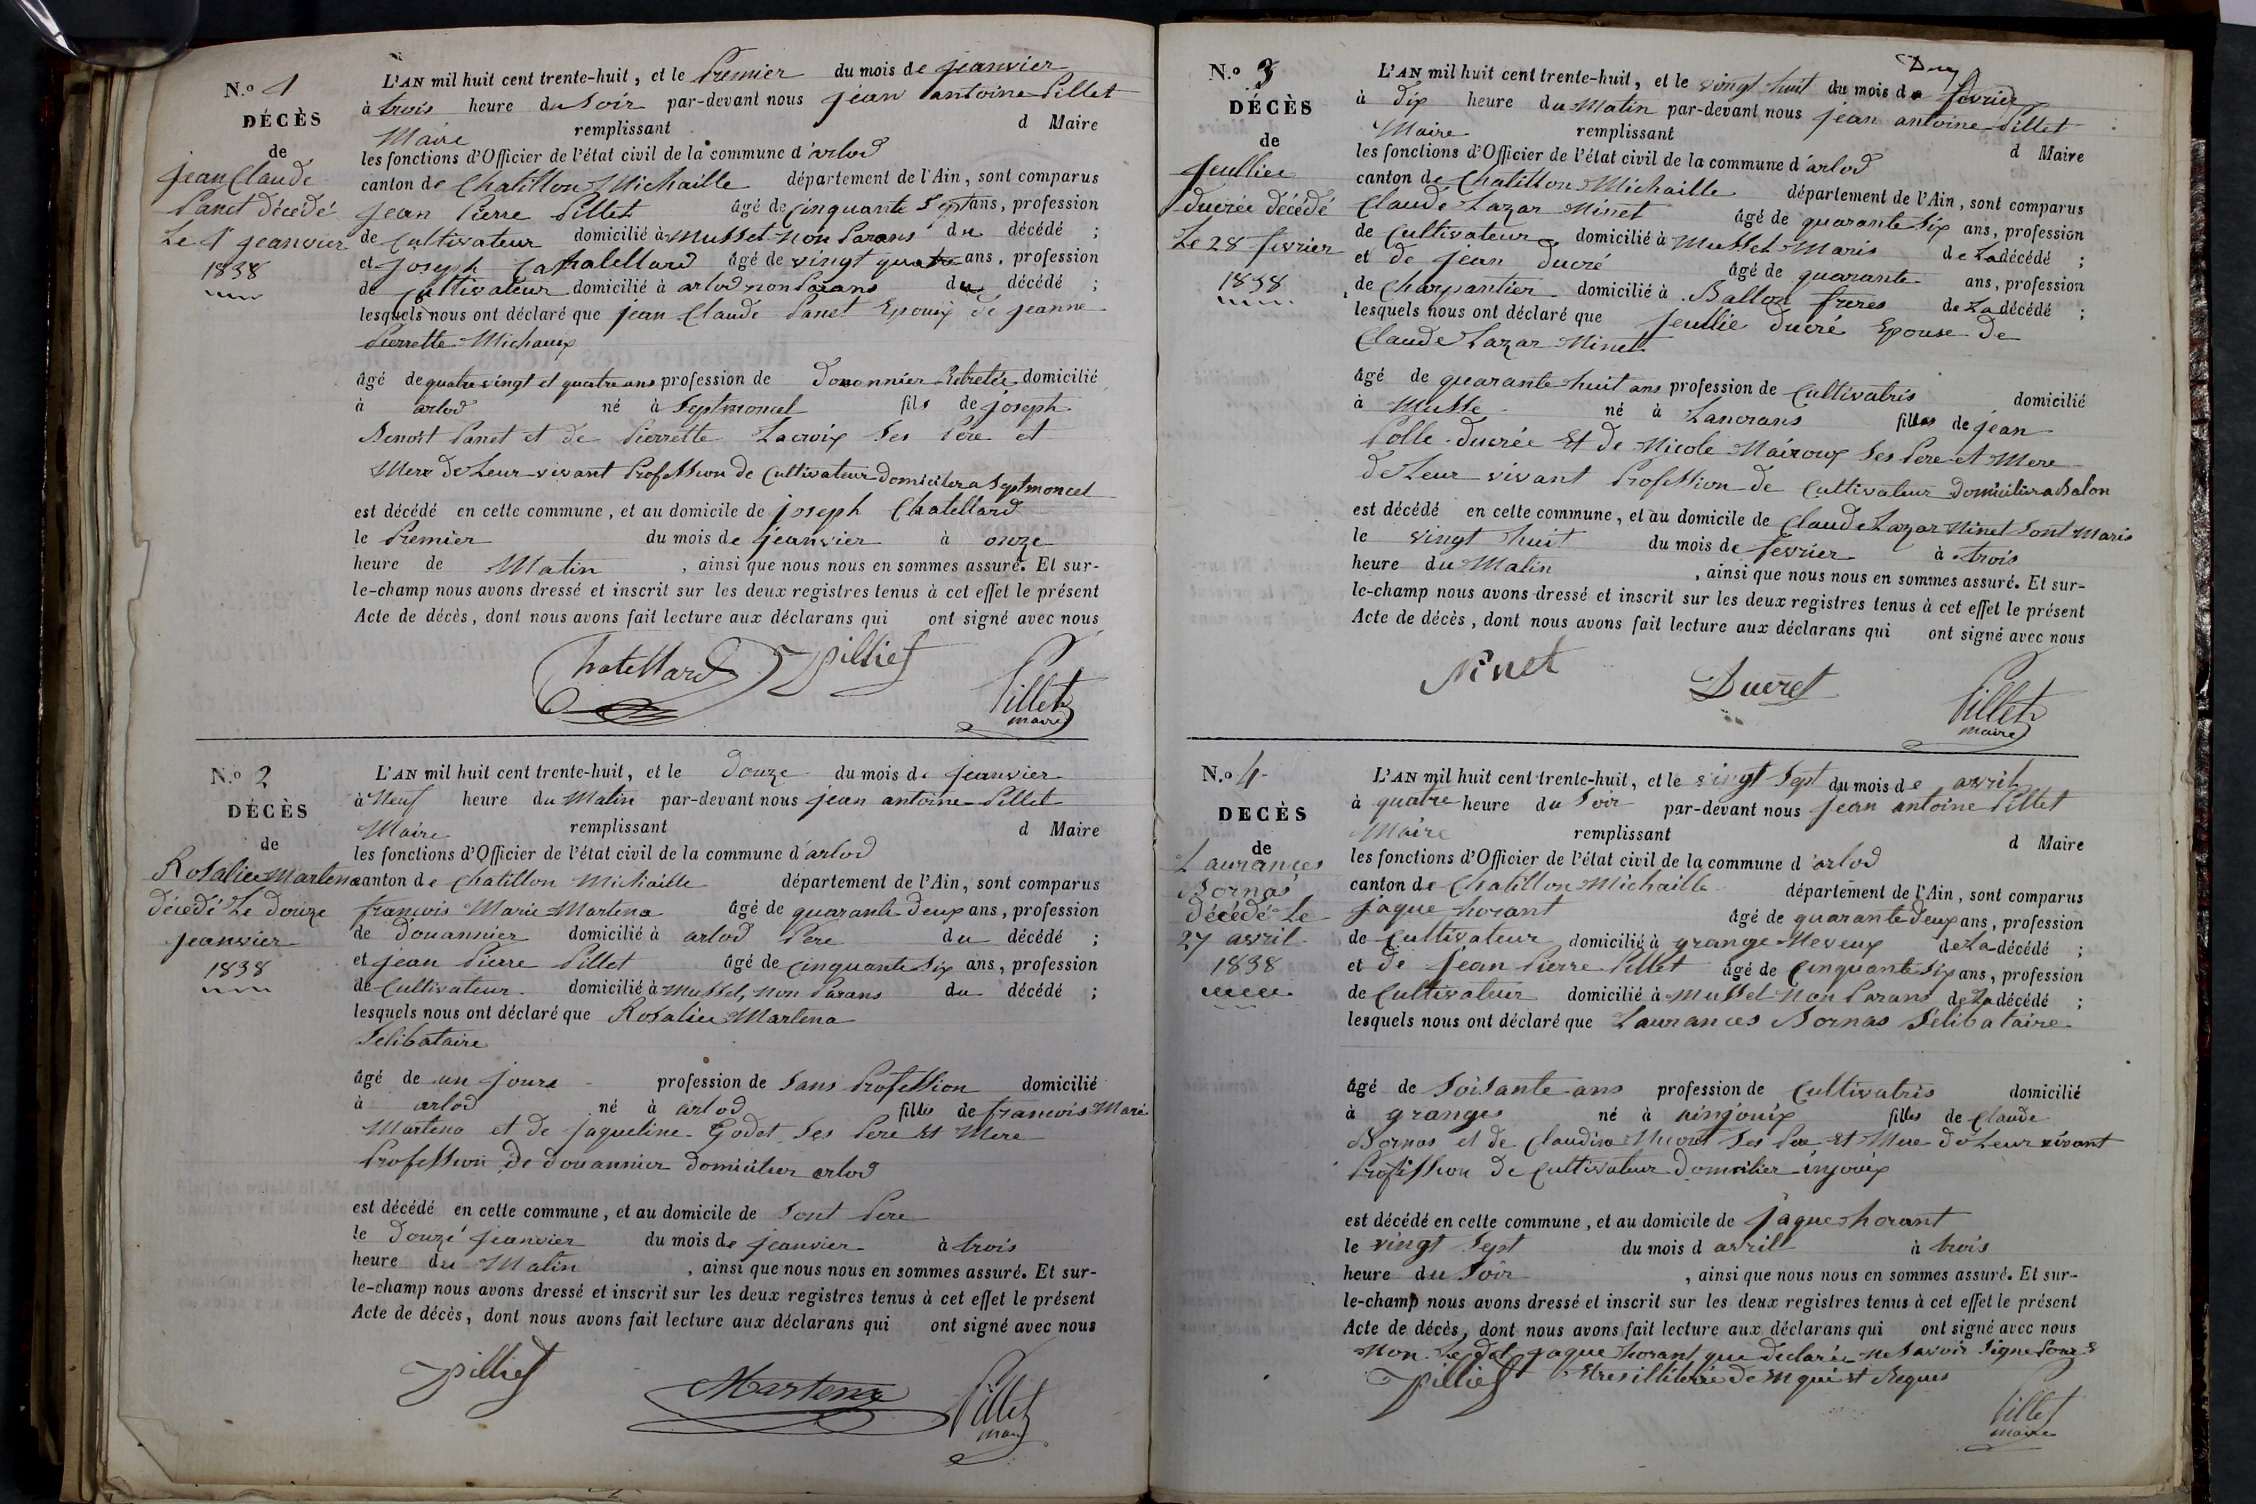 N.º 1
DÉCÈS
de
jean Claude
Panet décédé
Le 1er jeanvier
1838
L'AN mil huit cent trente-huit, et le Premier du mois de jeanvier
à trois heure du Soir par-devant nous jean antoine Pillet
Maire remplissant d Maire
les fonctions d'Officier de l'état civil de la commune d'arlod
canton de Chatillon Michaille département de l'Ain, sont comparus
jean Pierre Pillet âgé de cinquante Sept ans, profession
de Cultivateur domicilié à Mussel Non Parans du décédé ;
et joseph Chatellard âgé de vingt quatre ans, profession
de Cultivateur domicilié à arlod non Parans du décédé ;
lesquels nous ont déclaré que jean Claude Panet Epouix de jeanne
Pierrette Michaux
âgé de quatre vingt et quatre ans profession de douannier Retretée domicilié
à arlod né à Septmoncel fils de joseph
Benoit Panet et de Pierrette Lacroix Ses Père et
Mere de Leur vivant Profession de Cultivateur domicilier a Septmoncel
est décédé en cette commune, et au domicile de joseph Chatellard
le Premier du mois de jeanvier à onze
heure de Matin , ainsi que nous nous en sommes assuré. Et sur-
le-champ nous avons dressé et inscrit sur les deux registres tenus à cet effet le présent
Acte de décès, dont nous avons fait lecture aux déclarans qui ont signé avec nous
Chatellard JPilliet Pillet
maire
N.º 2
DÉCÈS
de
Rosalie Martena
décédé Le douze
jeanvier
1838
L'AN mil huit cent trente-huit, et le douze du mois de jeanvier
à Neuf heure du Matin par-devant nous jean antoine Pillet
Maire remplissant d Maire
les fonctions d'Officier de l'état civil de la commune d'arlod
canton de Chatillon Michaille département de l'Ain, sont comparus
francois Marie Martena âgé de quarante deux ans, profession
de douannier domicilié à arlod Pere du décédé ;
et jean Pierre Pillet âgé de cinquante Six ans, profession
de Cultivateur domicilié à Mussel, non Parans du décédé ;
lesquels nous ont déclaré que Rosalie Martena
Selibataire
âgé de un jours profession de Sans Profession domicilié
à arlod né à arlod fille de francois Marie
Martena et de jaqueline Godet Ses Pere Et Mere
Profession de douannier domicilier arlod
est décédé en cette commune, et au domicile de Sont Pere
le douze jeanvier du mois de jeanvier à trois
heure du Matin , ainsi que nous nous en sommes assuré. Et sur-
le-champ nous avons dressé et inscrit sur les deux registres tenus à cet effet le présent
Acte de décès, dont nous avons fait lecture aux déclarans qui ont signé avec nous
JPilliet Martena Pillet
maire
N.º 3
DÉCÈS
de
feullie
ducrée décédé
Le 28 fevrier
1838
L'AN mil huit cent trente-huit, et le vingt huit du mois de fevrier
à dix heure du Matin par-devant nous jean antoine Pillet
Maire remplissant d Maire
les fonctions d'Officier de l'état civil de la commune d'arlod
canton de Chatillon Michaille département de l'Ain, sont comparus
Claude Lazar Ninet âgé de quarante Six ans, profession
de Cultivateur domicilié à Mussel Maris de La décédé ;
et de jean ducré âgé de quarante ans, profession
de Charpantier domicilié à Ballon freres de La décédé ;
lesquels nous ont déclaré que feullie ducré Epouse de
Claude Lazar Ninet
âgé de quarante huit ans profession de Cultivatris domicilié
à Musse né à Lancrans filles de jean
Polle ducrée Et de Nicole Mairoux Ses Pere et Mere
de Leur vivant Profession de Cultivateur domicilier a Balon
est décédé en cette commune, et au domicile de Claude Lazar Ninet Sont Maris
le vingt huit du mois de fevrier à trois
heure du Matin , ainsi que nous nous en sommes assuré. Et sur-
le-champ nous avons dressé et inscrit sur les deux registres tenus à cet effet le présent
Acte de décès, dont nous avons fait lecture aux déclarans qui ont signé avec nous
Ninet Ducret Pillet
maire
N.º 4
DECÈS
de
Laurances
Bornas
décédé Le
27 avril
1838
L'AN mil huit cent trente-huit, et le vingt Sept du mois de avril
à quatre heure du Soir par-devant nous jean antoine Pillet
Maire remplissant d Maire
les fonctions d'Officier de l'état civil de la commune d'arlod
canton de Chatillon Michaille département de l'Ain, sont comparus
jaque horant âgé de quarante deux ans, profession
de Cultivateur domicilié à grange Neveux de La décédé ;
et de jean Pierre Pillet âgé de Cinquante Six ans, profession
de Cultivateur domicilié à Mussel Non Parans de La décédé ;
lesquels nous ont déclaré que Laurances Bornas Selibataire
âgé de Soisante ans profession de Cultivatris domicilié
à granges né à injouix filles de Claude
Bornas et de Claudine Ses Pere et Mere de Leur vivant
Profession de Cultivateur domicilier injouix
est décédé en cette commune, et au domicile de jaque horant
le vingt Sept du mois d avrill à trois
heure du Soir , ainsi que nous nous en sommes assuré. Et sur-
le-champ nous avons dressé et inscrit sur les deux registres tenus à cet effet le présent
Acte de décès, dont nous avons fait lecture aux déclarans qui ont signé avec nous
Non Le dt jaque horant que declarée ne Savoir Signe Pour
JPilliet Etres illiterée de
Pillet
maire